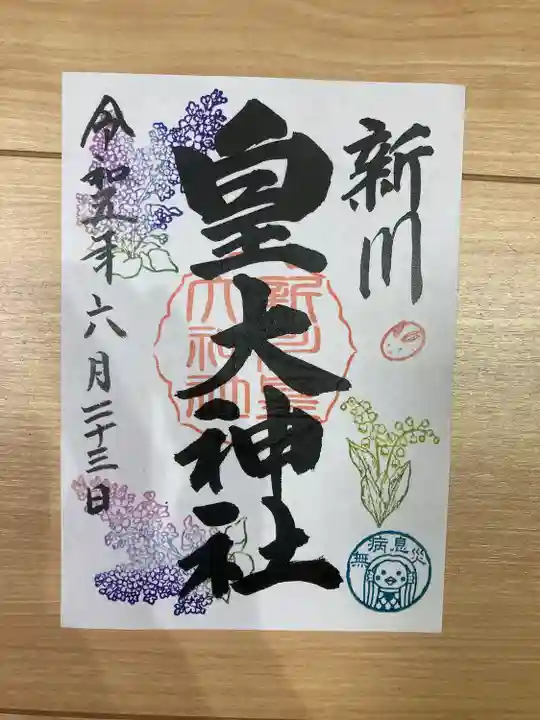 新川
皇大神社
令和五年六月二十三日
新川皇大神社
無病息災